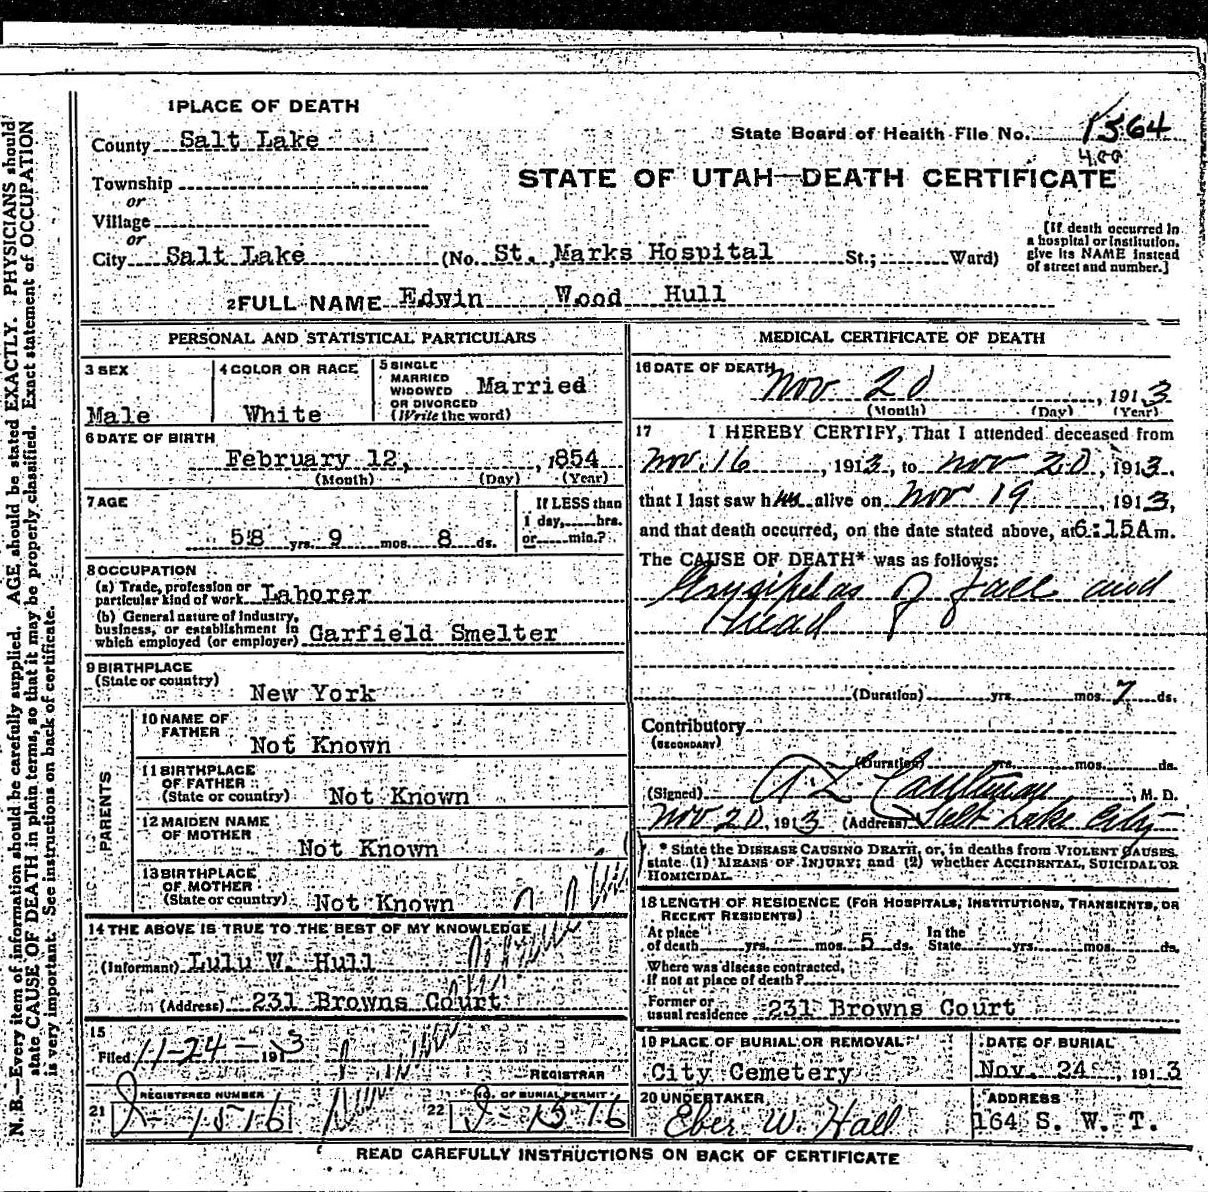 N. B.—Every item of information should be carefully supplied. AGE should be stated EXACTLY. PHYSICIANS should
state CAUSE OF DEATH in plain terms, so that it may be properly classified. Exact statement of OCCUPATION
is very important. See instructions on back of certificate.
1 PLACE OF DEATH
County Salt Lake
State Board of Health File No. 1564
400
Township
or
Village
or
STATE OF UTAH—DEATH CERTIFICATE
City Salt Lake (No. St. Marks Hospital St.; Ward)
[If death occurred in
a hospital or institution,
give its NAME instead
of street and number.]
2 FULL NAME Edwin Wood Hull
PERSONAL AND STATISTICAL PARTICULARS
3 SEX
Male
4 COLOR OR RACE
White
5 SINGLE
MARRIED
WIDOWED
OR DIVORCED
(Write the word)
Married
6 DATE OF BIRTH
February 12, , 1854
(Month) (Day) (Year)
7 AGE
58 yrs. 9 mos. 8 ds.
If LESS than
1 day, hrs.
or min.?
8 OCCUPATION
(a) Trade, profession or
particular kind of work Laborer
(b) General nature of industry,
business, or establishment in
which employed (or employer) Garfield Smelter
9 BIRTHPLACE
(State or country)
New York
PARENTS
10 NAME OF
FATHER
Not Known
11 BIRTHPLACE
OF FATHER
(State or country) Not Known
12 MAIDEN NAME
OF MOTHER
Not Known
13 BIRTHPLACE
OF MOTHER
(State or country) Not Known
14 THE ABOVE IS TRUE TO THE BEST OF MY KNOWLEDGE
(Informant) Lulu W. Hull
(Address) 231 Browns Court
15
Filed 11-24- 1913
REGISTRAR
REGISTERED NUMBER
21 1516
NO. OF BURIAL PERMIT
22 1516
MEDICAL CERTIFICATE OF DEATH
16 DATE OF DEATH
Nov 20 , 1913
(Month) (Day) (Year)
17 I HEREBY CERTIFY, That I attended deceased from
Nov. 16 , 1913, to Nov 20, 1913,
that I last saw him alive on Nov 19 , 1913,
and that death occurred, on the date stated above, at 6:15A m.
The CAUSE OF DEATH* was as follows:
Erysipelas of face and
Head
(Duration) yrs. mos. 7 ds.
Contributory
(SECONDARY)
(Duration) yrs. mos. ds.
(Signed) , M. D.
Nov 20, 1913 (Address) Salt Lake City
* State the DISEASE CAUSING DEATH, or, in deaths from VIOLENT CAUSES,
state (1) MEANS OF INJURY; and (2) whether ACCIDENTAL, SUICIDAL OR
HOMICIDAL.
18 LENGTH OF RESIDENCE (FOR HOSPITALS, INSTITUTIONS, TRANSIENTS, OR
RECENT RESIDENTS)
At place
of death yrs. mos. 5 ds.
In the
State yrs. mos. ds.
Where was disease contracted,
if not at place of death?
Former or
usual residence 231 Browns Court
19 PLACE OF BURIAL OR REMOVAL
City Cemetery
DATE OF BURIAL
Nov. 24 , 1913
20 UNDERTAKER
Eber W. Hall
ADDRESS
164 S. W. T.
READ CAREFULLY INSTRUCTIONS ON BACK OF CERTIFICATE